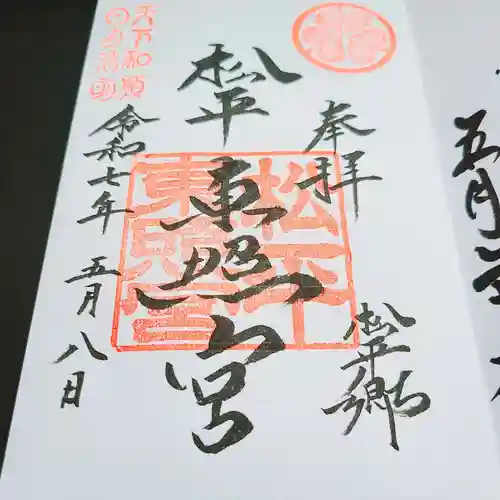 奉拝
松平郷
松平
東照宮
松平
東照宮
令和七年
五月八日
天下和順
日月清明
五月